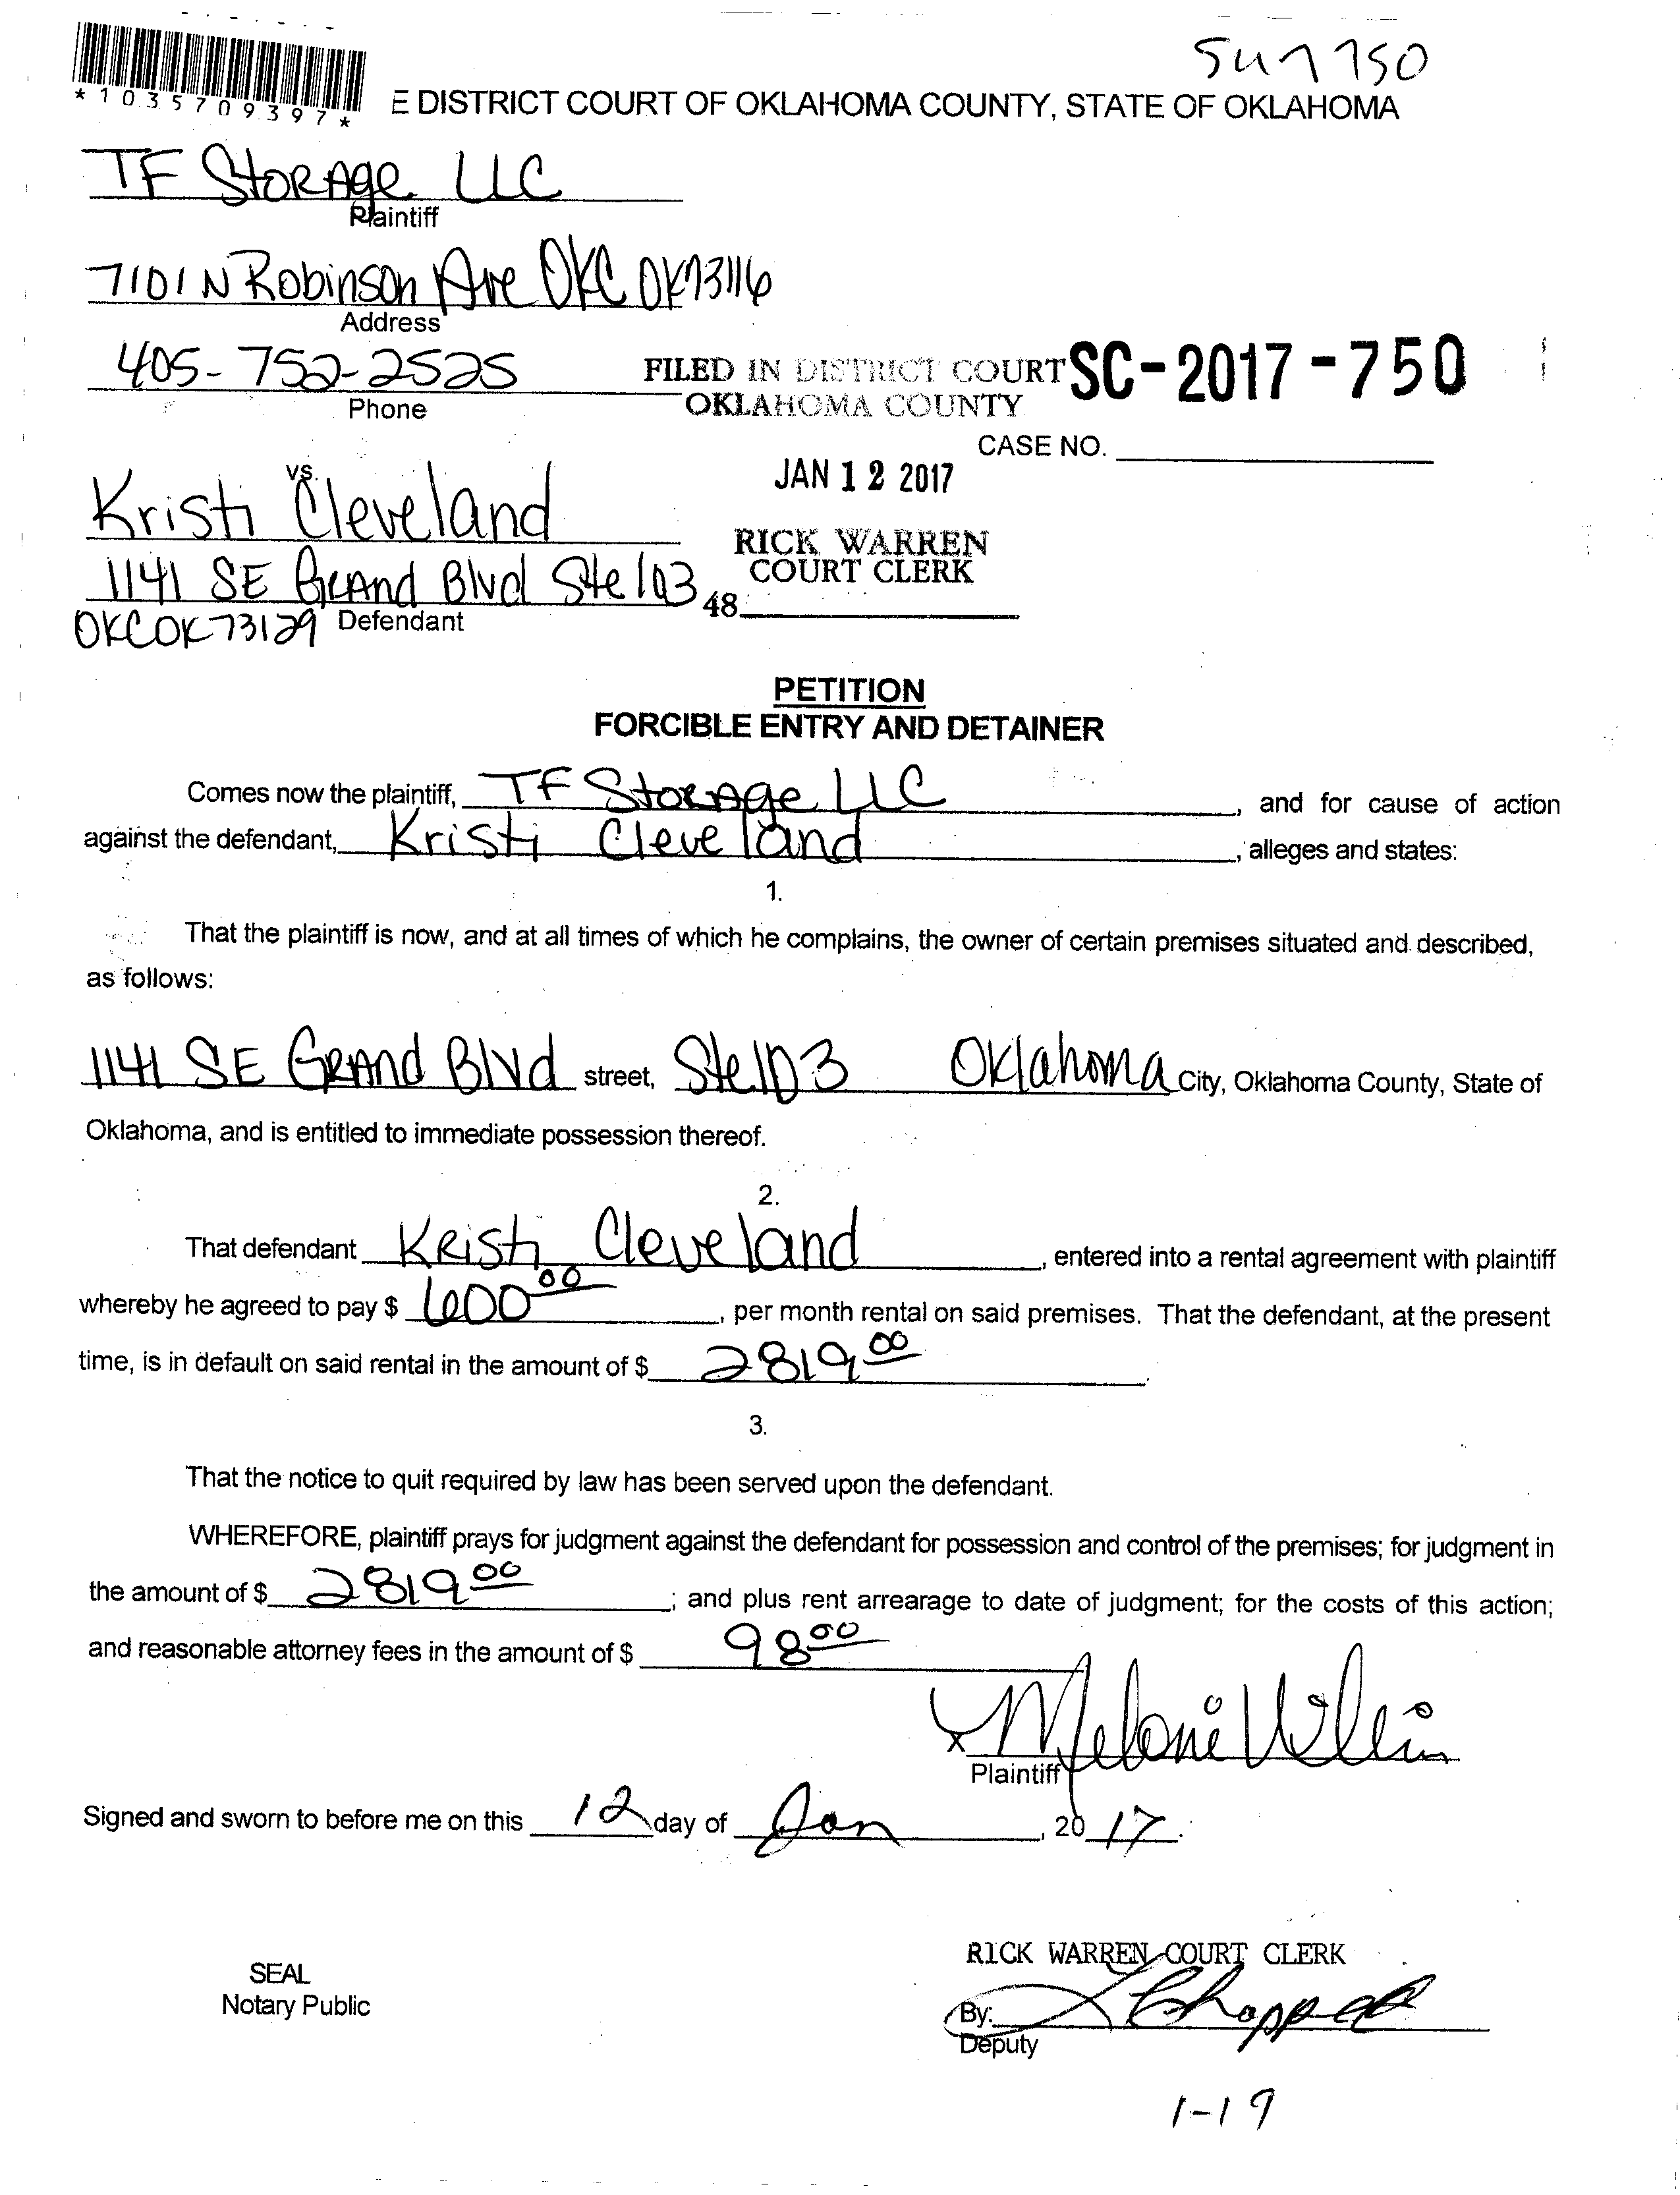 *1035709397*
E DISTRICT COURT OF OKLAHOMA COUNTY, STATE OF OKLAHOMA
TF Storage LLC
Plaintiff
7101 N Robinson Ave OKC OK 73116
Address
405-752-2525
Phone
FILED IN DISTRICT COURT
OKLAHOMA COUNTY
SC-2017-750
CASE NO.
JAN 12 2017
vs.
Kristi Cleveland
RICK WARREN
COURT CLERK
1141 SE Grand Blvd Ste 103
48
OKC OK 73129 Defendant
PETITION
FORCIBLE ENTRY AND DETAINER
Comes now the plaintiff, TF Storage LLC, and for cause of action
against the defendant, Kristi Cleveland, alleges and states:
1.
That the plaintiff is now, and at all times of which he complains, the owner of certain premises situated and described,
as follows:
1141 SE Grand Blvd street, Ste 103 Oklahoma City, Oklahoma County, State of
Oklahoma, and is entitled to immediate possession thereof.
2.
That defendant Kristi Cleveland, entered into a rental agreement with plaintiff
whereby he agreed to pay $ 600 00, per month rental on said premises. That the defendant, at the present
time, is in default on said rental in the amount of $ 2819 00.
3.
That the notice to quit required by law has been served upon the defendant.
WHEREFORE, plaintiff prays for judgment against the defendant for possession and control of the premises; for judgment in
the amount of $ 2819 00; and plus rent arrearage to date of judgment; for the costs of this action;
and reasonable attorney fees in the amount of $ 98 00
X Melonie
Plaintiff
Signed and sworn to before me on this 12 day of Jan, 2017.
RICK WARREN COURT CLERK
SEAL
Notary Public
By:
Deputy
1-19